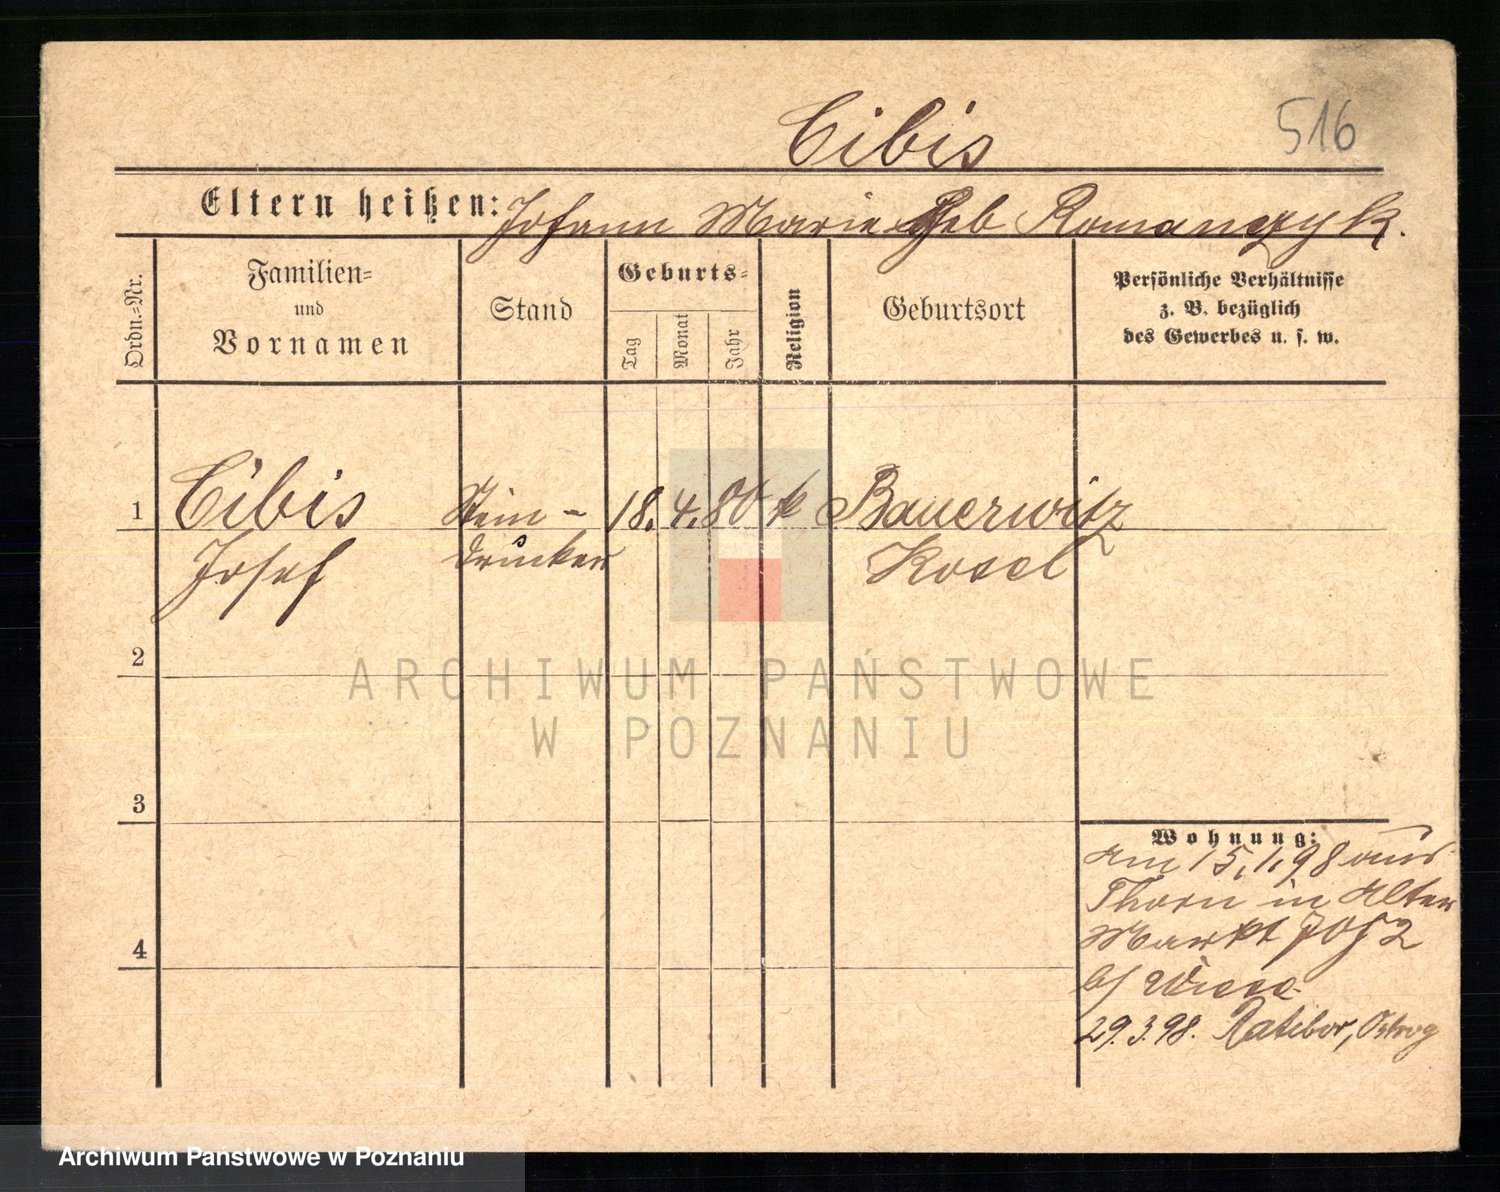 Cibis
516
Eltern heißen: Johann Marie Geb Romanczyk.
Ordn.=Nr.
Familien=
und
Vornamen
Stand
Geburts=
Tag
Monat
Jahr
Religion
Geburtsort
Persönliche Verhältnisse
z. B. bezüglich
des Gewerbes u. s. w.
1 Cibis Stein- 18. 4. 80 k Bauerwitz
Josef drucker Kosel
2
ARCHIWUM PAŃSTWOWE
W POZNANIU
3
Wohnung:
am 15.1.98 aus
Thorn in Alter
Markt
b/ Wiese
4
29.3.98. Ratibor, Ostrog
Archiwum Państwowe w Poznaniu